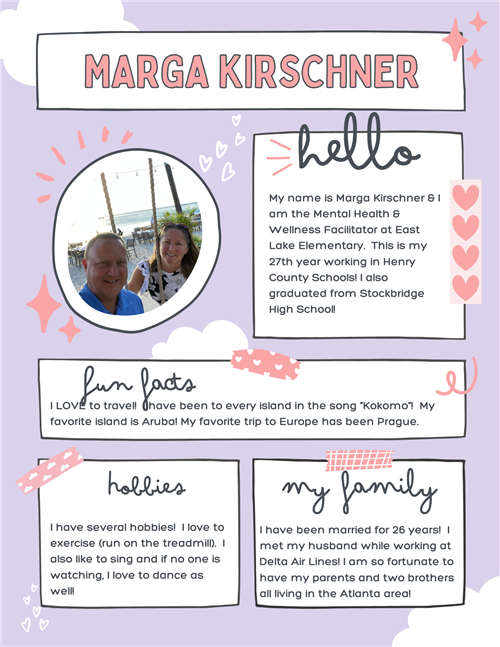 MARGA KIRSCHNER
hello
My name is Marga Kirschner & I
am the Mental Health &
Wellness Facilitator at East
Lake Elementary. This is my
27th year working in Henry
County Schools! I also
graduated from Stockbridge
High School!
fun facts
I LOVE to travel! I have been to every island in the song "Kokomo"! My
favorite island is Aruba! My favorite trip to Europe has been Prague.
hobbies
I have several hobbies! I love to
exercise (run on the treadmill). I
also like to sing and if no one is
watching, I love to dance as
well!
my family
I have been married for 26 years! I
met my husband while working at
Delta Air Lines! I am so fortunate to
have my parents and two brothers
all living in the Atlanta area!